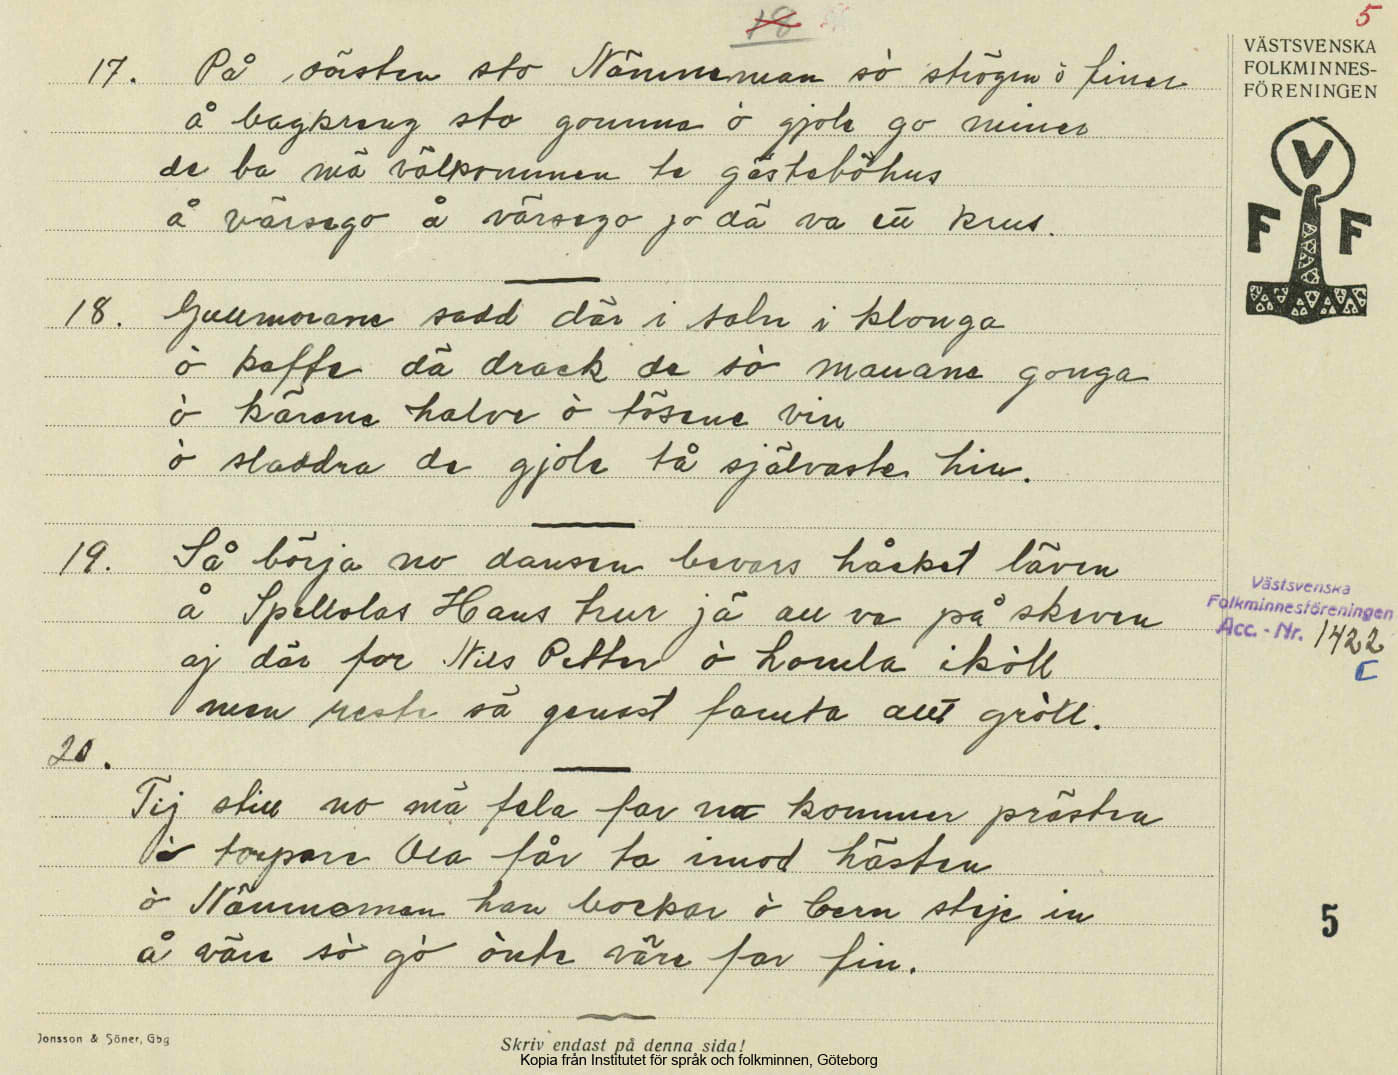 18
5
VÄSTSVENSKA
FOLKMINNES-
FÖRENINGEN
V
F F
17. På sto Nämneman sò strögen ò finer
å bagkreng sto gomma ò gjole go miner
de ba mä välkommen te gästebòhus
å värsego å värsego jo dä va ett krus.
18. Gullmorane sadd där i saln i klonga
ò kaffe dä drack de sò manane gonga
ò kärene halve ò tösene vin
ò sladdra de gjole tå självaste hin.
19. Så börja no dansen bevars håcket läven
å Spellolas Hans hur jä all va på skeven
aj där for Nils Petter ò homla ikòll
men reste sä genast famta allt gròll.
20.
Tij still no mä fela far na kommer prästen
ò torpare Ola får ta imod hästen
ò Nämneman han bockar ò bern steje in
å väre sò gò önte väre far fin.
Västsvenska
Folkminnesföreningen
Acc. - Nr. 1422
C
5
Jonsson & Söner, Gbg
Skriv endast på denna sida!
Kopia från Institutet för språk och folkminnen, Göteborg